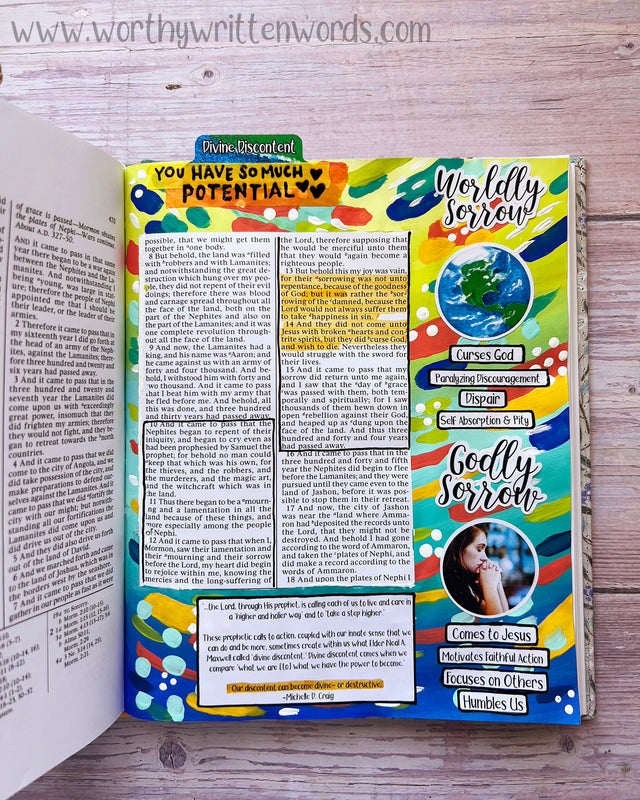 www.worthywrittenwords.com
of grace is passed—Mormon obtains
the plates of Nephi—Wars continue.
About A.D. 327–50.
AND it came to pass in that same
year there began to be a war again
between the Nephites and the La-
manites. And notwithstanding I
being young, was large in sta-
ture; therefore the people of Nephi
appointed me that I should be
their leader, or the leader of their
armies.
2 Therefore it came to pass that in
my sixteenth year I did go forth at
the head of an army of the Neph-
ites, against the Lamanites; there-
fore three hundred and twenty and
six years had passed away.
3 And it came to pass that in the
three hundred and twenty and
seventh year the Lamanites did
come upon us with exceedingly
great power, insomuch that they
did frighten my armies; therefore
they would not fight, and they be-
gan to retreat towards the north
countries.
4 And it came to pass that we did
come to the city of Angola, and we
did take possession of the city, and
make preparations to defend our-
selves against the Lamanites. And it
came to pass that we did fortify the
city with our might; but notwith-
standing all our fortifications the
Lamanites did come upon us and
did drive us out of the city.
5 And they did also drive us forth
out of the land of David.
6 And we marched forth and came
to the land of Joshua, which was in
the borders west by the seashore.
7 And it came to pass that we did
gather in our people as fast as it were
470
Divine Discontent
YOU HAVE SO MUCH
POTENTIAL
possible, that we might get them
together in one body.
8 But behold, the land was filled
with robbers and with Lamanites;
and notwithstanding the great de-
struction which hung over my peo-
ple, they did not repent of their evil
doings; therefore there was blood
and carnage spread throughout all
the face of the land, both on the
part of the Nephites and also on
the part of the Lamanites; and it was
one complete revolution through-
out all the face of the land.
9 And now, the Lamanites had a
king, and his name was Aaron; and
he came against us with an army of
forty and four thousand. And be-
hold, I withstood him with forty and
two thousand. And it came to pass
that I beat him with my army that
he fled before me. And behold, all
this was done, and three hundred
and thirty years had passed away.
10 And it came to pass that the
Nephites began to repent of their
iniquity, and began to cry even as
had been prophesied by Samuel the
prophet; for behold no man could
keep that which was his own, for
the thieves, and the robbers, and
the murderers, and the magic art,
and the witchcraft which was in
the land.
11 Thus there began to be a mourn-
ing and a lamentation in all the
land because of these things, and
more especially among the people
of Nephi.
12 And it came to pass that when I,
Mormon, saw their lamentation and
their mourning and their sorrow
before the Lord, my heart did begin
to rejoice within me, knowing the
mercies and the long-suffering of
the Lord, therefore supposing that
he would be merciful unto them
that they would again become a
righteous people.
13 But behold this my joy was vain,
for their sorrowing was not unto
repentance, because of the goodness
of God; but it was rather the sor-
rowing of the damned, because the
Lord would not always suffer them
to take happiness in sin.
14 And they did not come unto
Jesus with broken hearts and con-
trite spirits, but they did curse God,
and wish to die. Nevertheless they
would struggle with the sword for
their lives.
15 And it came to pass that my
sorrow did return unto me again,
and I saw that the day of grace
was passed with them, both tem-
porally and spiritually; for I saw
thousands of them hewn down in
open rebellion against their God,
and heaped up as dung upon the
face of the land. And thus three
hundred and forty and four years
had passed away.
16 And it came to pass that in the
three hundred and forty and fifth
year the Nephites did begin to flee
before the Lamanites; and they were
pursued until they came even to the
land of Jashon, before it was pos-
sible to stop them in their retreat.
17 And now, the city of Jashon
was near the land where Amma-
ron had deposited the records unto
the Lord, that they might not be
destroyed. And behold I had gone
according to the word of Ammaron,
and taken the plates of Nephi, and
did make a record according to the
words of Ammaron.
18 And upon the plates of Nephi I
Worldly
Sorrow
Curses God
Paralyzing Discouragement
Dispair
Self Absorption & Pity
Godly
Sorrow
Comes to Jesus
Motivates Faithful Action
Focuses on Others
Humbles Us
"...the Lord, through His prophet, is calling each of us to live and care in
a 'higher and holier way' and to 'take a step higher.'
These prophetic calls to action, coupled with our innate sense that we
can do and be more, sometimes create within us what Elder Neal A.
Maxwell called 'divine discontent.' Divine discontent comes when we
compare 'what we are [to] what we have the power to become.'
Our discontent can become divine- or destructive.
-Michelle D. Craig